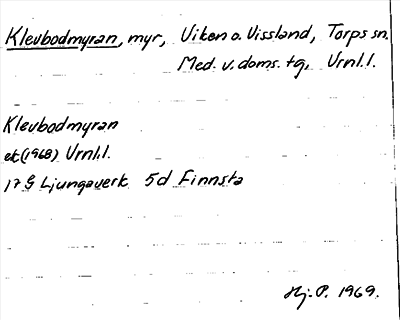 Klevbodmyran, myr, Viken o. Vissland, Torps sn.
Med. v. doms. tg, Vrnl.l.
Klevbodmyran
ek (1968) Vrnl.l.
17 G Ljungaverk 5d Finnsta
Hj. P. 1969.